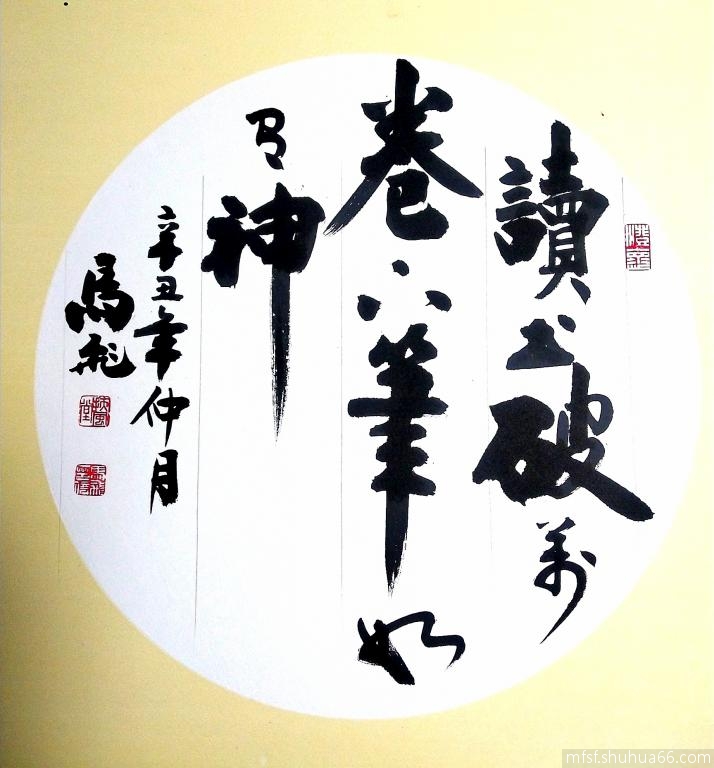 讀书破萬
卷下筆如
有神
辛丑年仲月
馬飛
mfsf.shuhua66.com